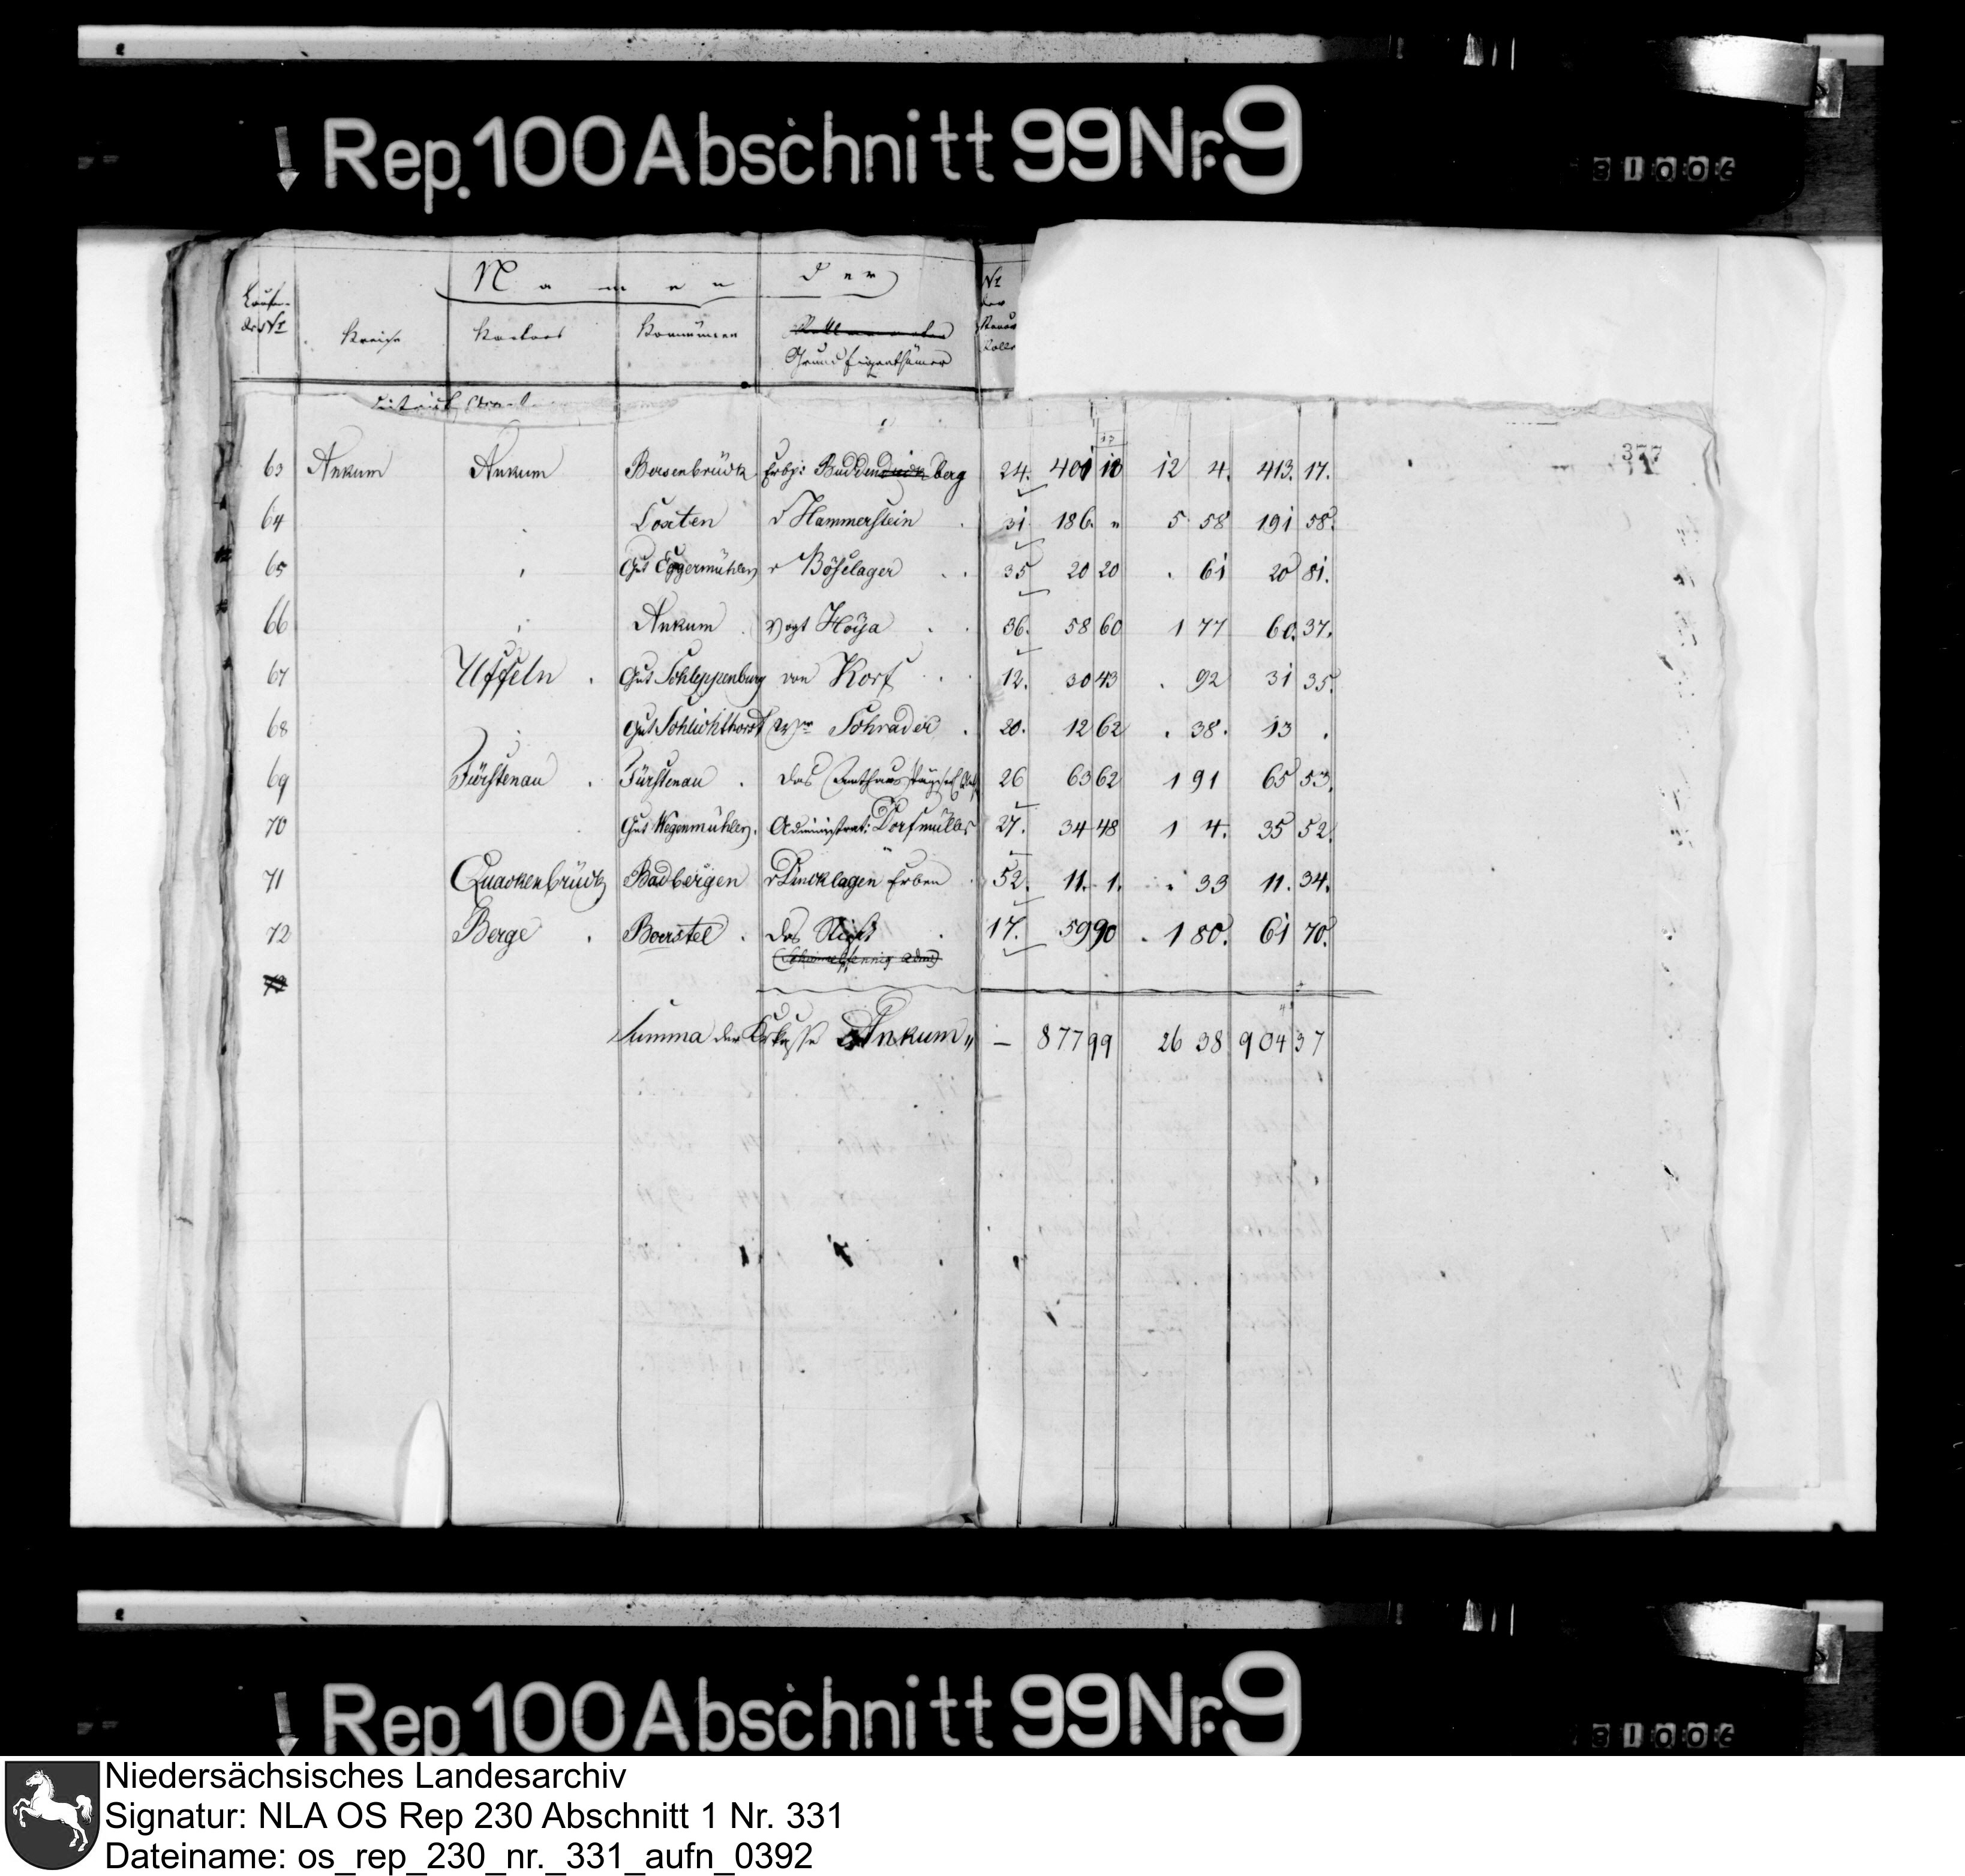 Rep. 100 Abschnitt 99 Nr. 9
Namen der
Laufende № Kreise Kantons Kommünen Grund Eigenthümer № der Mutter Rolle
377
63 Ankum Ankum Bersenbrück Erbg: Buddenberg 24. 401 13 12 4. 413. 17.
64 Loxten v Hammerstein 31 186. " 5 58 191 58.
65 Gut Eggermühlen v Böselager 35 20 20 . 61 20 81.
66 Ankum Vogt Höya 36. 58 60 1 77 60. 37.
67 Uffeln . Gut Schleppenburg von Korf 12. 30 43 . 92 31 35.
68 Gut Schlichthorst Schrader . 20. 12 62 . 38. 13 .
69 Fürstenau . Fürstenau . das Amthaus 26 63 62 1 91 65 53.
70 Gut Wegenmühlen. Administrat: Dorfmüller 27. 34 48 1 4. 35 52
71 Quackenbrück Badbergen v Dincklagen Erben 52. 11. 1. " 33 11. 34.
72 Berge . Boerstel . das Stift 17. 59 90 . 1 80. 61 70.
73
Summa der Ankum " — 877 99 26 38 904 37
Rep. 100 Abschnitt 99 Nr. 9
Niedersächsisches Landesarchiv
Signatur: NLA OS Rep 230 Abschnitt 1 Nr. 331
Dateiname: os_rep_230_nr._331_aufn_0392